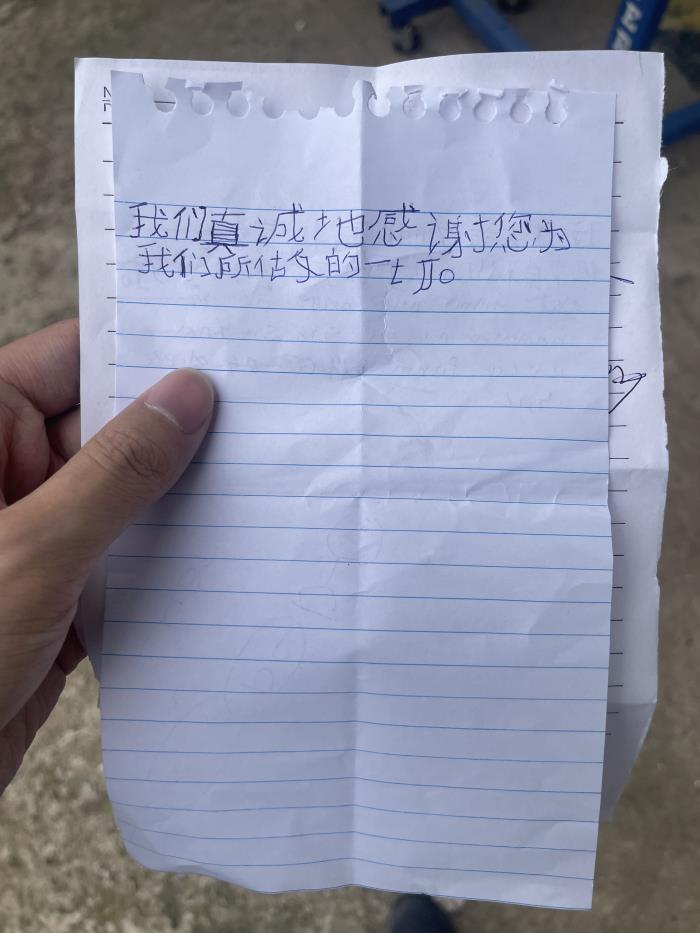 我们真诚地感谢您为
我们所做的一切。